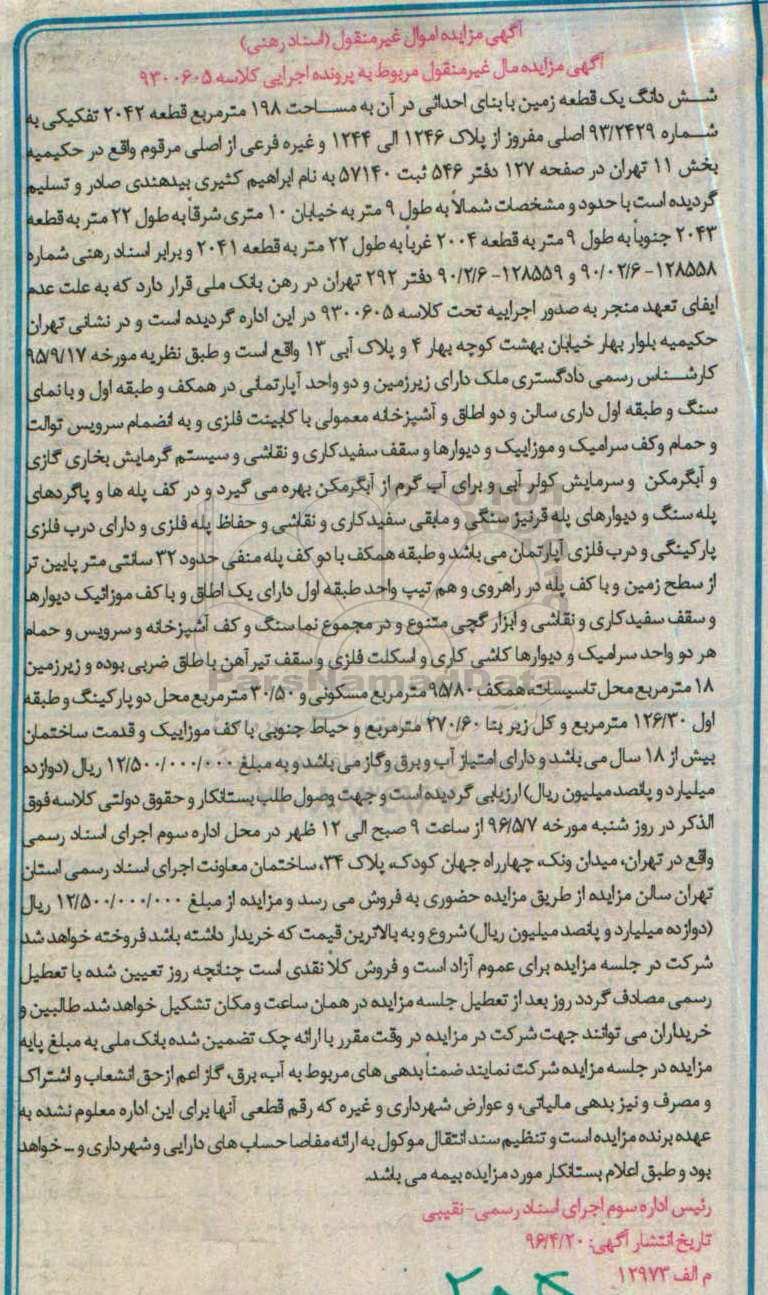 آگهی مزایده اموال غیرمنقول (اسناد رهنی)
آگهی مزایده مال غیرمنقول مربوط به پرونده اجرایی کلاسه ۹۳۰۰۶۰۵
شش دانگ یک قطعه زمین با بنای احداثی در آن به مساحت ۱۹۸ مترمربع قطعه ۲۰۴۲ تفکیکی به
شماره ۹۳/۲۴۲۹ اصلی مفروز از پلاک ۱۲۴۶ الی ۱۲۴۴ و غیره فرعی از اصلی مرقوم واقع در حکیمیه
بخش ۱۱ تهران در صفحه ۱۲۷ دفتر ۵۴۶ ثبت ۵۷۱۴۰ به نام ابراهیم کثیری بیدهندی صادر و تسلیم
گردیده است با حدود و مشخصات شمالاً به طول ۹ متر به خیابان ۱۰ متری شرقاً به طول ۲۲ متر به قطعه
۲۰۴۳ جنوباً به طول ۹ متر به قطعه ۲۰۰۴ غرباً به طول ۲۲ متر به قطعه ۲۰۴۱ و برابر اسناد رهنی شماره
۱۲۸۵۵۸- ۹۰/۰۲/۶ و ۱۲۸۵۵۹- ۹۰/۲/۶ دفتر ۲۹۲ تهران در رهن بانک ملی قرار دارد که به علت عدم
ایفای تعهد منجر به صدور اجراییه تحت کلاسه ۹۳۰۰۶۰۵ در این اداره گردیده است و در نشانی تهران
حکیمیه بلوار بهار خیابان بهشت کوچه بهار ۴ و پلاک آبی ۱۳ واقع است و طبق نظریه مورخه ۹۵/۹/۱۷
کارشناس رسمی دادگستری ملک دارای زیرزمین و دو واحد آپارتمانی در همکف و طبقه اول و با نمای
سنگ و طبقه اول داری سالن و دو اطاق و آشپزخانه معمولی با کابینت فلزی و به انضمام سرویس توالت
و حمام وکف سرامیک و موزاییک و دیوارها و سقف سفیدکاری و نقاشی و سیستم گرمایش بخاری گازی
و آبگرمکن و سرمایش کولر آبی و برای آب گرم از آبگرمکن بهره می گیرد و در کف پله ها و پاگردهای
پله سنگ و دیوارهای پله قرنیز سنگی و مابقی سفیدکاری و نقاشی و حفاظ پله فلزی و دارای درب فلزی
پارکینگی و درب فلزی آپارتمان می باشد و طبقه همکف با دو کف پله منفی حدود ۳۲ سانتی متر پایین تر
از سطح زمین و با کف پله در راهروی و هم تیپ واحد طبقه اول دارای یک اطاق و با کف موزائیک دیوارها
و سقف سفیدکاری و نقاشی و ابزار گچی متنوع و در مجموع نما سنگ و کف آشپزخانه و سرویس و حمام
هر دو واحد سرامیک و دیوارها کاشی کاری و اسکلت فلزی و سقف تیرآهن با طاق ضربی بوده و زیرزمین
۱۸ مترمربع محل تاسیسات، همکف ۹۵/۸۰ مترمربع مسکونی و ۳۰/۵۰ مترمربع محل دو پارکینگ و طبقه
اول ۱۲۶/۳۰ مترمربع و کل زیر بنا ۲۷۰/۶۰ مترمربع و حیاط جنوبی با کف موزاییک و قدمت ساختمان
بیش از ۱۸ سال می باشد و دارای امتیاز آب و برق و گاز می باشد و به مبلغ ۱۲/۵۰۰/۰۰۰/۰۰۰ ریال (دوازده
میلیارد و پانصد میلیون ریال) ارزیابی گردیده است و جهت وصول طلب بستانکار و حقوق دولتی کلاسه فوق
الذکر در روز شنبه مورخه ۹۶/۵/۷ از ساعت ۹ صبح الی ۱۲ ظهر در محل اداره سوم اجرای اسناد رسمی
واقع در تهران، میدان ونک، چهارراه جهان کودک، پلاک ۳۴، ساختمان معاونت اجرای اسناد رسمی استان
تهران سالن مزایده از طریق مزایده حضوری به فروش می رسد و مزایده از مبلغ ۱۲/۵۰۰/۰۰۰/۰۰۰ ریال
(دوازده میلیارد و پانصد میلیون ریال) شروع و به بالاترین قیمت که خریدار داشته باشد فروخته خواهد شد
شرکت در جلسه مزایده برای عموم آزاد است و فروش کلاً نقدی است چنانچه روز تعیین شده با تعطیل
رسمی مصادف گردد روز بعد از تعطیل جلسه مزایده در همان ساعت و مکان تشکیل خواهد شد. طالبین و
خریداران می توانند جهت شرکت در مزایده در وقت مقرر با ارائه چک تضمین شده بانک ملی به مبلغ پایه
مزایده در جلسه مزایده شرکت نمایند ضمناً بدهی های مربوط به آب، برق، گاز اعم از حق انشعاب و اشتراک
و مصرف و نیز بدهی مالیاتی، و عوارض شهرداری و غیره که رقم قطعی آنها برای این اداره معلوم نشده به
عهده برنده مزایده است و تنظیم سند انتقال موکول به ارائه مفاصا حساب های دارایی و شهرداری و ... خواهد
بود و طبق اعلام بستانکار مورد مزایده بیمه می باشد.
رئیس اداره سوم اجرای اسناد رسمی- نقیبی
تاریخ انتشار آگهی: ۹۶/۴/۲۰
م الف ۱۲۹۷۳
ParsNamadData